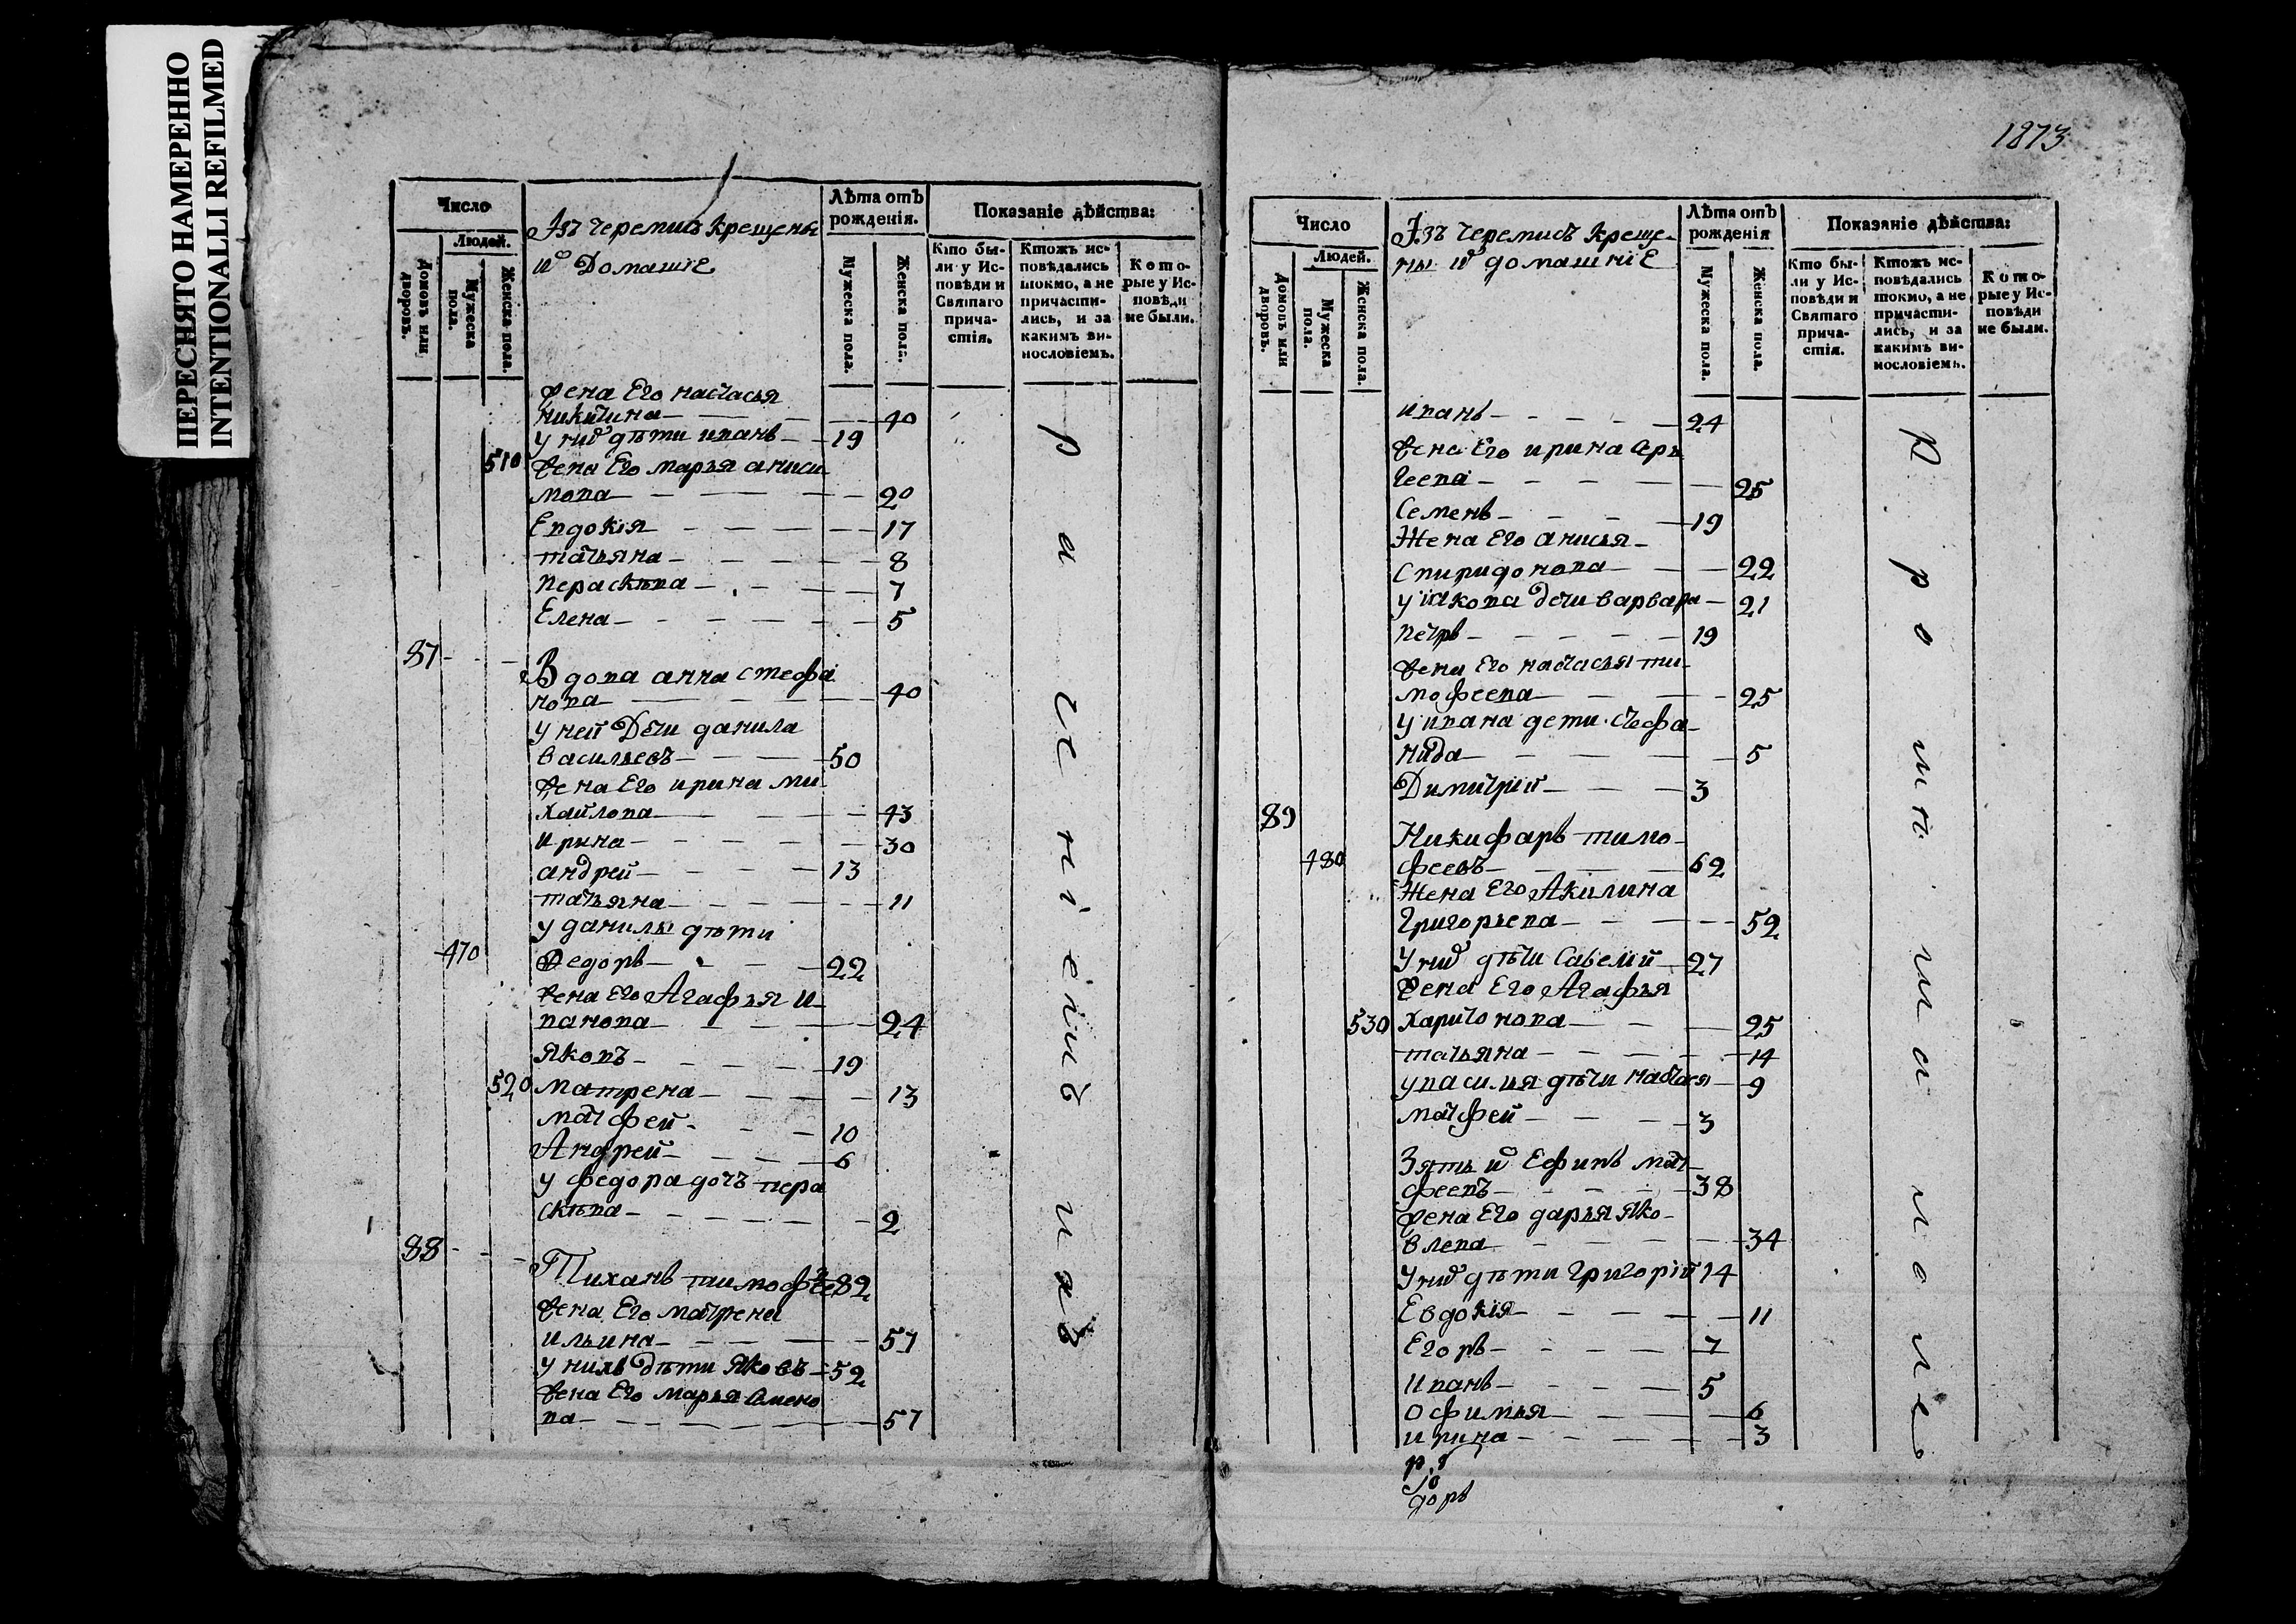 ПЕРЕСНЯТО НАМЕРЕННО
INTENTIONALLI REFILMED
Число
Людей.
Домовъ или дворовъ.
Мужеска пола.
Женска пола.
Изъ черемисъ крещены
и домашніе
Лѣта отъ рожденія.
Мужеска пола.
Женска пола.
Показаніе дѣйства:
Кто бы-
ли у Ис-
повѣди и
Святаго
прича-
стія.
Ктожъ ис-
повѣдались
токмо, а не
причасти-
лись, и за
какимъ ви-
нословіемъ.
Кото-
рые у Ис-
повѣди
не были.
жена Его настасья
никитина 40
у них дѣти иванъ 19
510 жена Его марья аниси
мова 20
Евдокія 17
татьяна 8
перасковя 7
Елена 5
87
Вдова анна стефа
нова 40
у ней Дети данила
васильевъ 50
жена Его ирина ми
хайлова 43
ирина 30
андрей 13
татьяна 11
у данилы дѣти
470 Федоръ 22
жена Его Агафья и
ванова 24
Яковъ 19
520 матрена 13
матфей 10
Андрей 6
у федора дочь пера
сковя 2
88
Тиханъ тимофѣе 82
жена Его матрена
ильина 57
у нихъ дѣти Яковъ 52
жена Его марья семено
ва 57
1873
Число
Людей.
Домовъ или дворовъ.
Мужеска пола.
Женска пола.
Изъ черемисъ креще-
ны и домашніе
Лѣта отъ рожденія
Мужеска пола.
Женска пола.
Показаніе дѣйства:
Кто бы-
ли у Ис-
повѣди и
Святаго
прича-
стія.
Ктожъ ис-
повѣдались
токмо, а не
причасти-
лись, и за
какимъ ви-
нословіемъ.
Кото-
рые у Ис-
повѣди
не были.
иванъ 24
жена Его ирина сер
геева 25
Семенъ 19
Жена Его анисья
спиридонова 22
у іакова дети варвара 21
петръ 19
жена Его настасья ти-
мофеева 25
у ивана дети стефа-
нида 5
Димитрій 3
89
Никифаръ тимо-
480 феевъ 62
Жена Его Акилина
Григорьева 52
у них дѣти Савелий 27
жена Его Агафья
530 харитонова 25
татьяна 14
у василия дѣти настася 9
матфей 3
Зять и Ефимъ мат
феевъ 38
жена Его дарья Яко-
влева 34
у них дѣти григорій 14
Евдокія 11
Егоръ 7
Иванъ 5
офимья 6
ирина 3